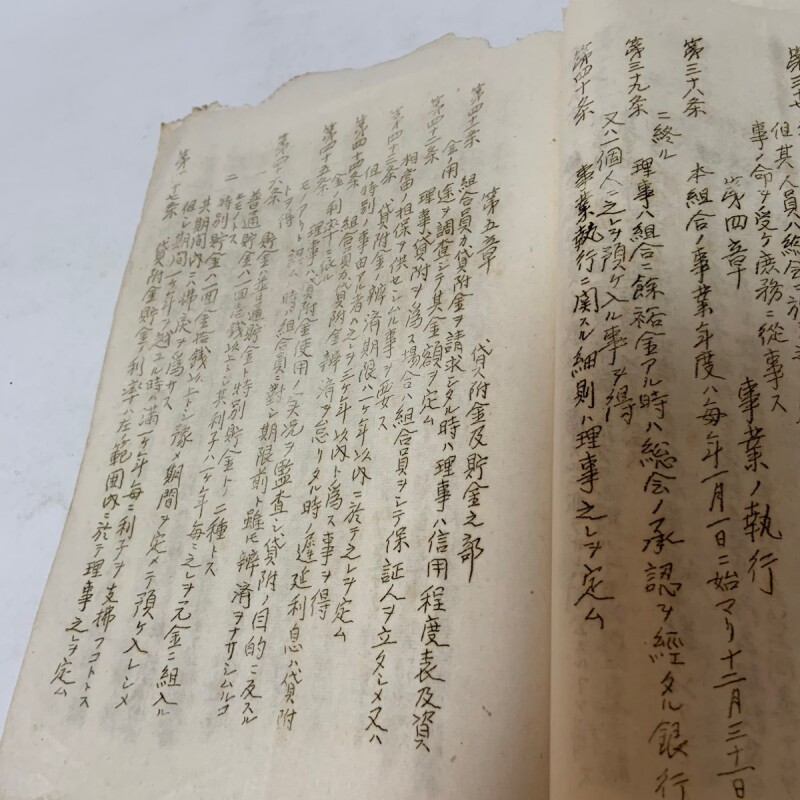 但其人員ハ総会ニ於
事ノ命ヲ受ケ庶務ニ從事ス
第四章 事業ノ執行
第三十八条 本組合ノ事業年度ハ毎年一月一日ニ始マリ十二月三十一日
ニ終ル
第三十九条 理事ハ組合ニ餘裕金アル時ハ総会ノ承認ヲ經タル銀行
又ハ個人ニ之レヲ預ケ入ル事ヲ得
第四十条 事業執行ニ関スル細則ハ理事之レヲ定ム
第五章 貸附金及貯金之部
第四十一条 組合員カ貸附金ヲ請求シタル時ハ理事ハ信用程度表及資
金ノ用途ヲ調査シテ其金額ヲ定ム
第四十二条 理事貸附ヲ為ス場合ハ組合員ヲシテ保証人ヲ立タシメ又ハ
相當ノ担保ヲ供センムル事ヲ要ス
第四十三条 貸附金ノ辨済期限ハ一ケ年以内ニ於テ之レヲ定ム
但特別ノ事由アル者ハ之レヲ三ケ年以内ト為ス事ヲ得
第四十四条 組合員カ貸附金ノ辨済ヲ怠リタル時ノ遅延利息ハ貸附
金ノ利率ニ依ル
第四十五条 理事ハ貸附金使用ノ実况ヲ監査シ貸附ノ目的ニ反スル
モノアリト認ム時ハ組合員ニ對シ期限前ト雖モ辨済ヲナサシムルコ
トヲ得
第四十六条 貯金ハ普通貯金ト特別貯金トノ二種トス
一 普通貯金ハ一回 銭以上トシ其利子ハ一ケ年毎ニ之レヲ元金ニ組入ル
モノトス
二 特別貯金ハ一回金拾銭以上トシ豫メ期間ヲ定メテ預ケ入レシメ
其期間内ハ拂戻ヲ為サス
但シ期間一ケ年ヲ超エル時ハ満一ケ年毎ニ利子ヲ支拂フコトトス
第 十七条 貸附金貯金ノ利率ハ左ノ範囲内ニ於テ理事之レヲ定ム